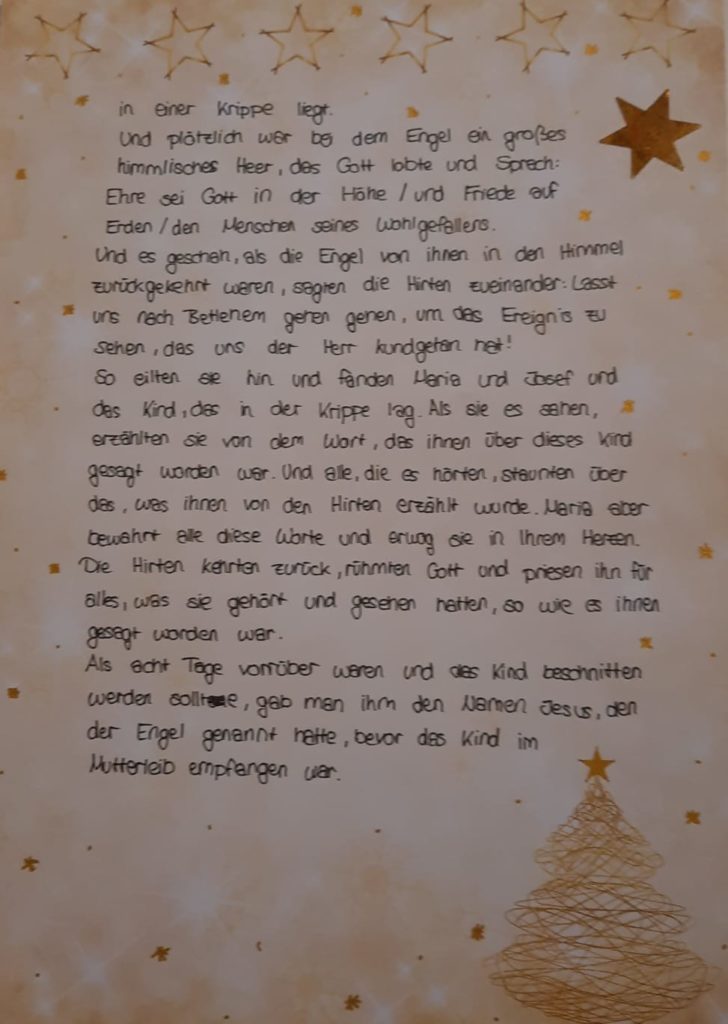 in einer Krippe liegt.
Und plötzlich war bei dem Engel ein großes
himmlisches Heer, das Gott lobte und Sprach:
Ehre sei Gott in der Höhe / und Friede auf
Erden / den Menschen seines Wohlgefallens.
Und es geschah, als die Engel von ihnen in den Himmel
zurückgekehrt waren, sagten die Hirten zueinander: Lasst
uns nach Betlehem gehen gehen, um das Ereignis zu
sehen, das uns der Herr kundgetan hat!
So eilten sie hin und fanden Maria und Josef und
das Kind, das in der Krippe lag. Als sie es sahen,
erzählten sie von dem Wort, das ihnen über dieses Kind
gesagt worden war. Und alle, die es hörten, staunten über
das, was ihnen von den Hirten erzählt wurde. Maria aber
bewahrt alle diese Worte und erwog sie in Ihrem Herzen.
Die Hirten kehrten zurück, rühmten Gott und priesen ihn für
alles, was sie gehört und gesehen hatten, so wie es ihnen
gesagt worden war.
Als acht Tage vorrüber waren und das Kind beschnitten
werden sollte, gab man ihm den Namen Jesus, den
der Engel genannt hatte, bevor das Kind im
Mutterleib empfangen war.